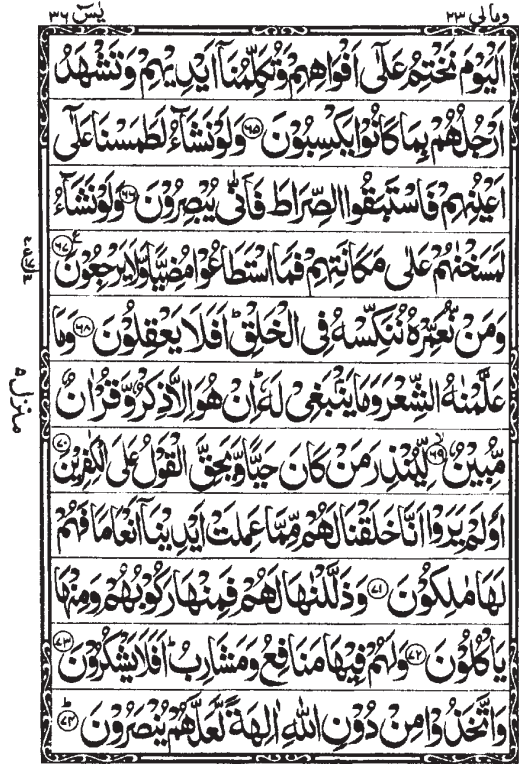 یٰسٓ ۳۶ وما لی ۲۳
اَلْیَوْمَ نَخْتِمُ عَلٰۤی اَفْوَاهِهِمْ وَتُكَلِّمُنَاۤ اَیْدِیْهِمْ وَتَشْهَدُ
اَرْجُلُهُمْ بِمَا كَانُوْا یَكْسِبُوْنَ ﴿۶۵﴾ وَلَوْ نَشَآءُ لَطَمَسْنَا عَلٰۤی
اَعْیُنِهِمْ فَاسْتَبَقُوا الصِّرَاطَ فَاَنّٰی یُبْصِرُوْنَ ﴿۶۶﴾ وَلَوْ نَشَآءُ
لَمَسَخْنٰهُمْ عَلٰی مَكَانَتِهِمْ فَمَا اسْتَطَاعُوْا مُضِیًّا وَّلَا یَرْجِعُوْنَ ﴿۶۷﴾
وَمَنْ نُّعَمِّرْهُ نُنَكِّسْهُ فِی الْخَلْقِ ؕ اَفَلَا یَعْقِلُوْنَ ﴿۶۸﴾ وَمَا
عَلَّمْنٰهُ الشِّعْرَ وَمَا یَنْۢبَغِیْ لَهٗ ؕ اِنْ هُوَ اِلَّا ذِكْرٌ وَّقُرْاٰنٌ
مُّبِیْنٌ ﴿۶۹﴾ لِّیُنْذِرَ مَنْ كَانَ حَیًّا وَّیَحِقَّ الْقَوْلُ عَلَی الْكٰفِرِیْنَ ﴿۷۰﴾
اَوَلَمْ یَرَوْا اَنَّا خَلَقْنَا لَهُمْ مِّمَّا عَمِلَتْ اَیْدِیْنَاۤ اَنْعَامًا فَهُمْ
لَهَا مٰلِكُوْنَ ﴿۷۱﴾ وَذَلَّلْنٰهَا لَهُمْ فَمِنْهَا رَكُوْبُهُمْ وَمِنْهَا
یَاْكُلُوْنَ ﴿۷۲﴾ وَلَهُمْ فِیْهَا مَنَافِعُ وَمَشَارِبُ ؕ اَفَلَا یَشْكُرُوْنَ ﴿۷۳﴾
وَاتَّخَذُوْا مِنْ دُوْنِ اللّٰهِ اٰلِهَةً لَّعَلَّهُمْ یُنْصَرُوْنَ ﴿۷۴﴾
منزل ۵